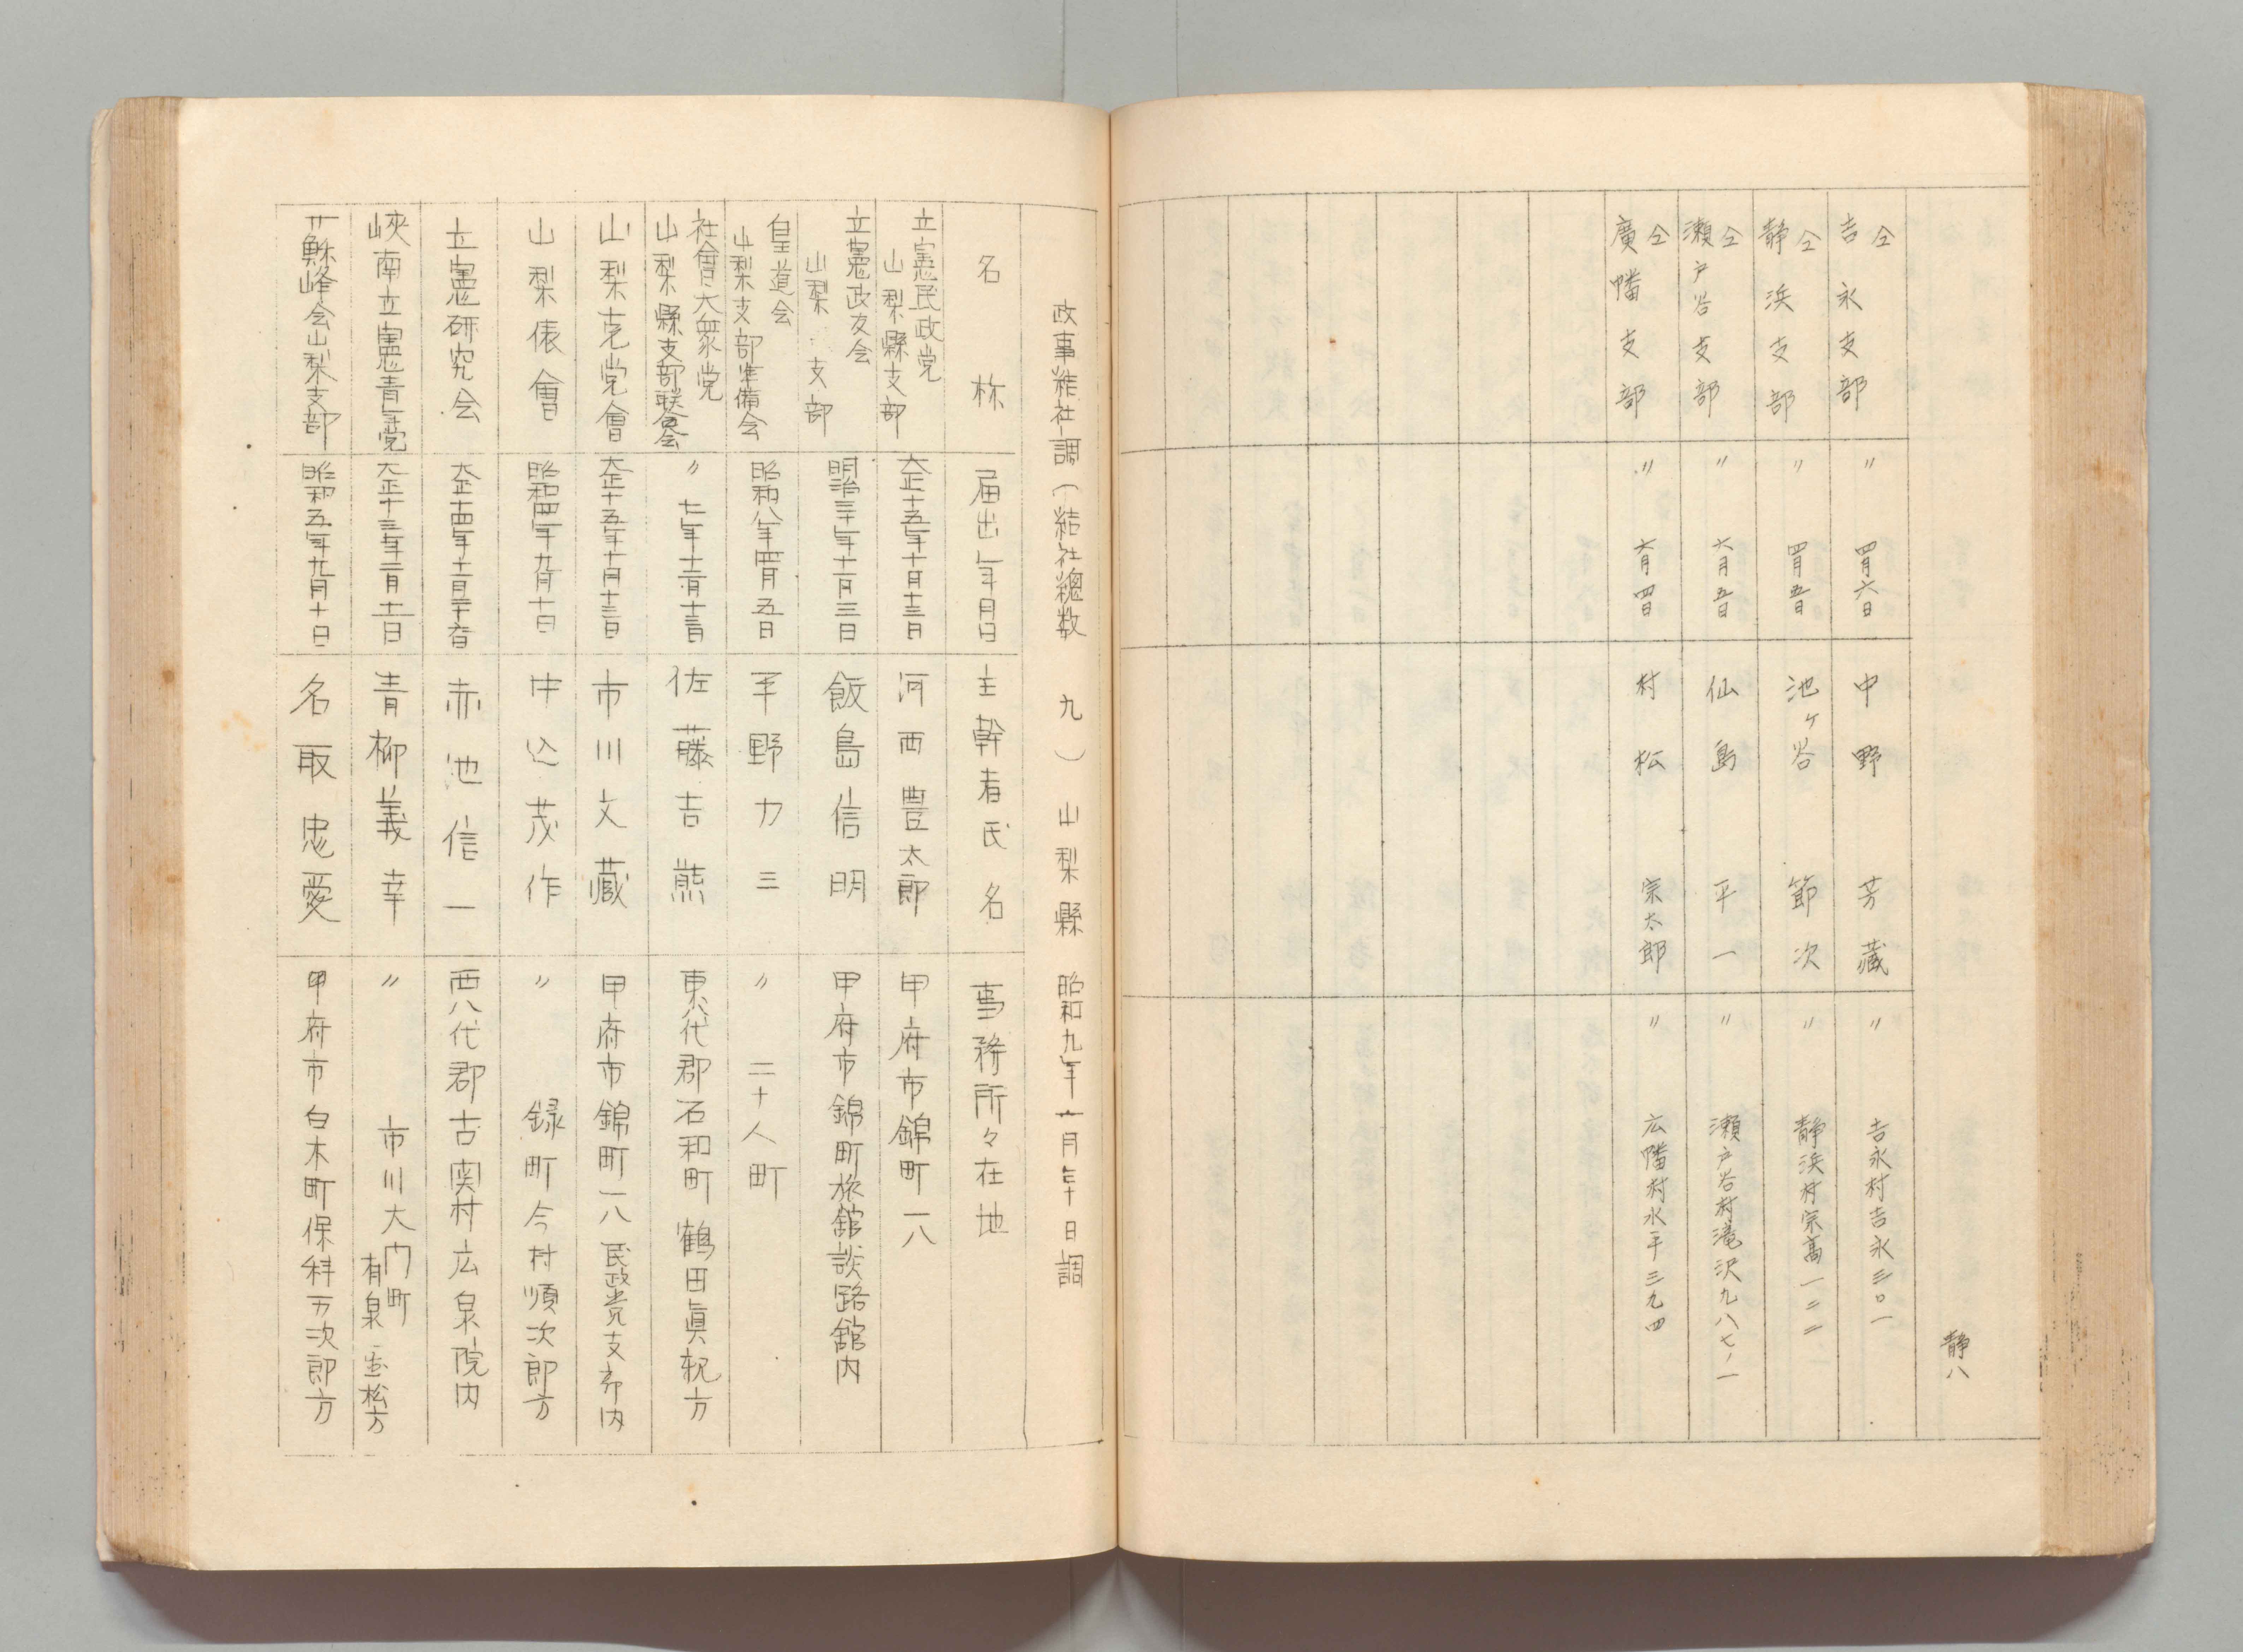 静八
仝
吉永支部 〃 四月六日 中野芳藏 〃 吉永村吉永三〇一
仝
静浜支部 〃 四月五日 池ケ谷節次 〃 静浜村宗高一二二
仝
瀬戸谷支部 〃 六月五日 仙島平一 〃 瀬戸谷村滝沢九八七ノ一
仝
廣幡支部 〃 六月四日 村松宗太郎 〃 広幡村水平三九四
政事結社調(結社總数 九) 山梨縣 昭和九年 月 日調
名称 届出年月日 主幹者氏名 事務所々在地
立憲民政党
山梨縣支部 大正十五年十月十三日 河西豊太郎 甲府市錦町一八
立憲政友会
山梨支部 明治三十年十一月三日 飯島信明 甲府市錦町旅舘談路舘内
皇道会
山梨支部準備会 昭和八年四月五日 平野力三 〃 二十人町
社會大衆党
山梨縣支部联合会 〃 七年十二月十三日 佐藤吉熊 東八代郡石和町鶴田眞祝方
山梨克党會 大正十五年十月十三日 市川文藏 甲府市錦町一八民政党支部内
山梨俵會 昭和四年九月十日 中込茂作 〃 録町今村順次郎方
立憲研究会 大正十四年十二月二十六日 赤池信一 西八代郡古関村広泉院内
峽南立憲青年党 大正十三年二月十一日 青柳義幸 〃 市川大门町
有泉 松方
蘇峰会山梨支部 昭和五年九月十日 名取忠愛 甲府市白木町保科万次郎方